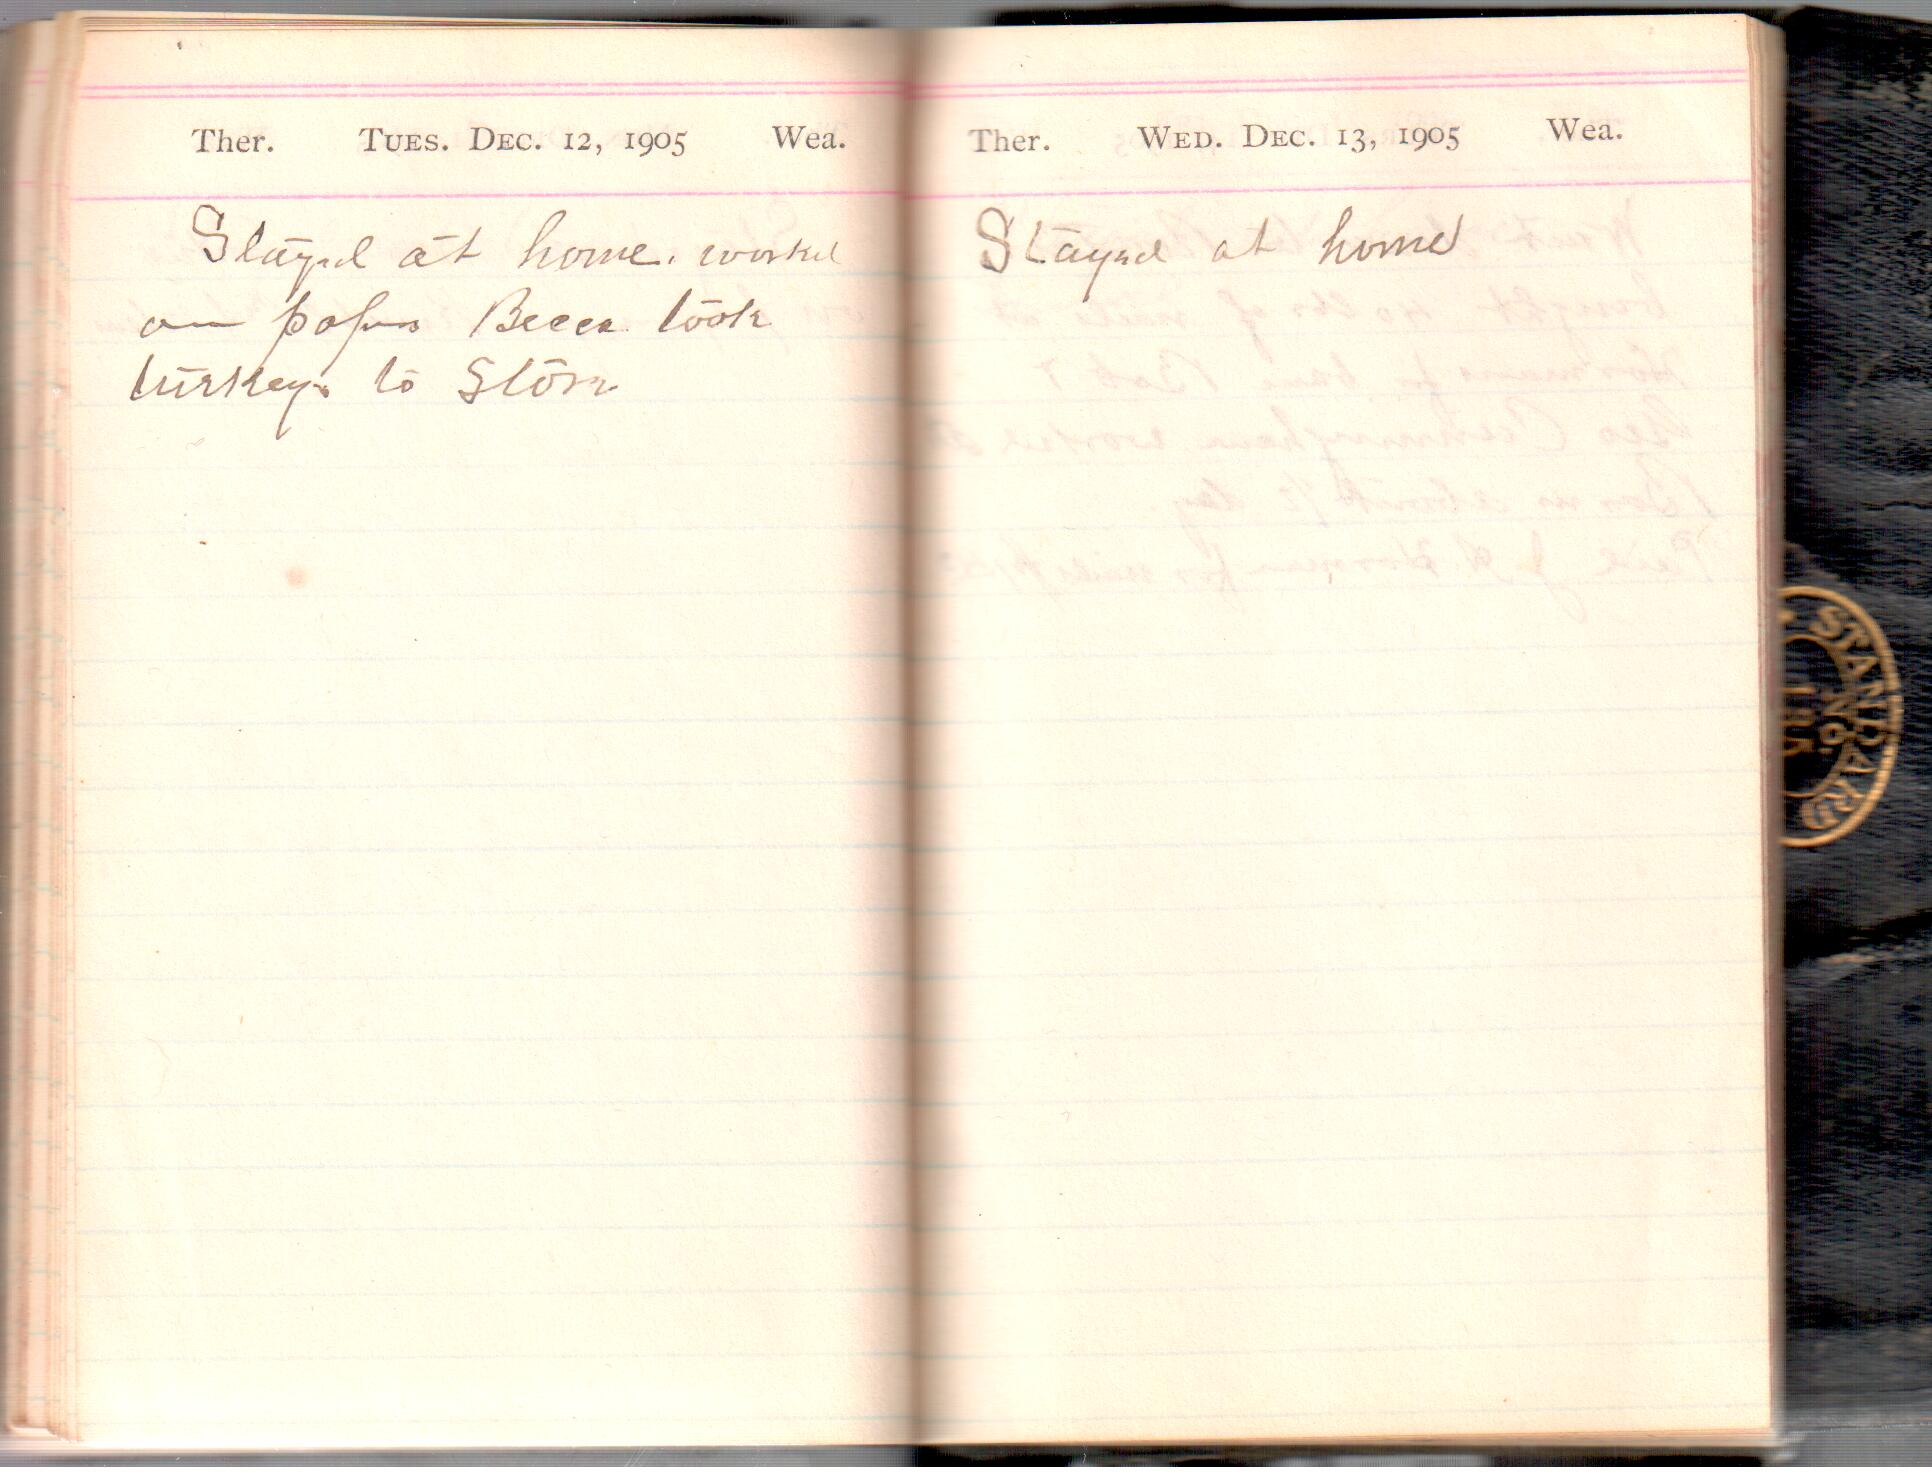 Ther. TUES. DEC. 12, 1905 Wea.
Stayed at home. worked
on papers Becca took
turkeys to Store
Ther. WED. DEC. 13, 1905 Wea.
Stayed at home
STANDARD
NO.